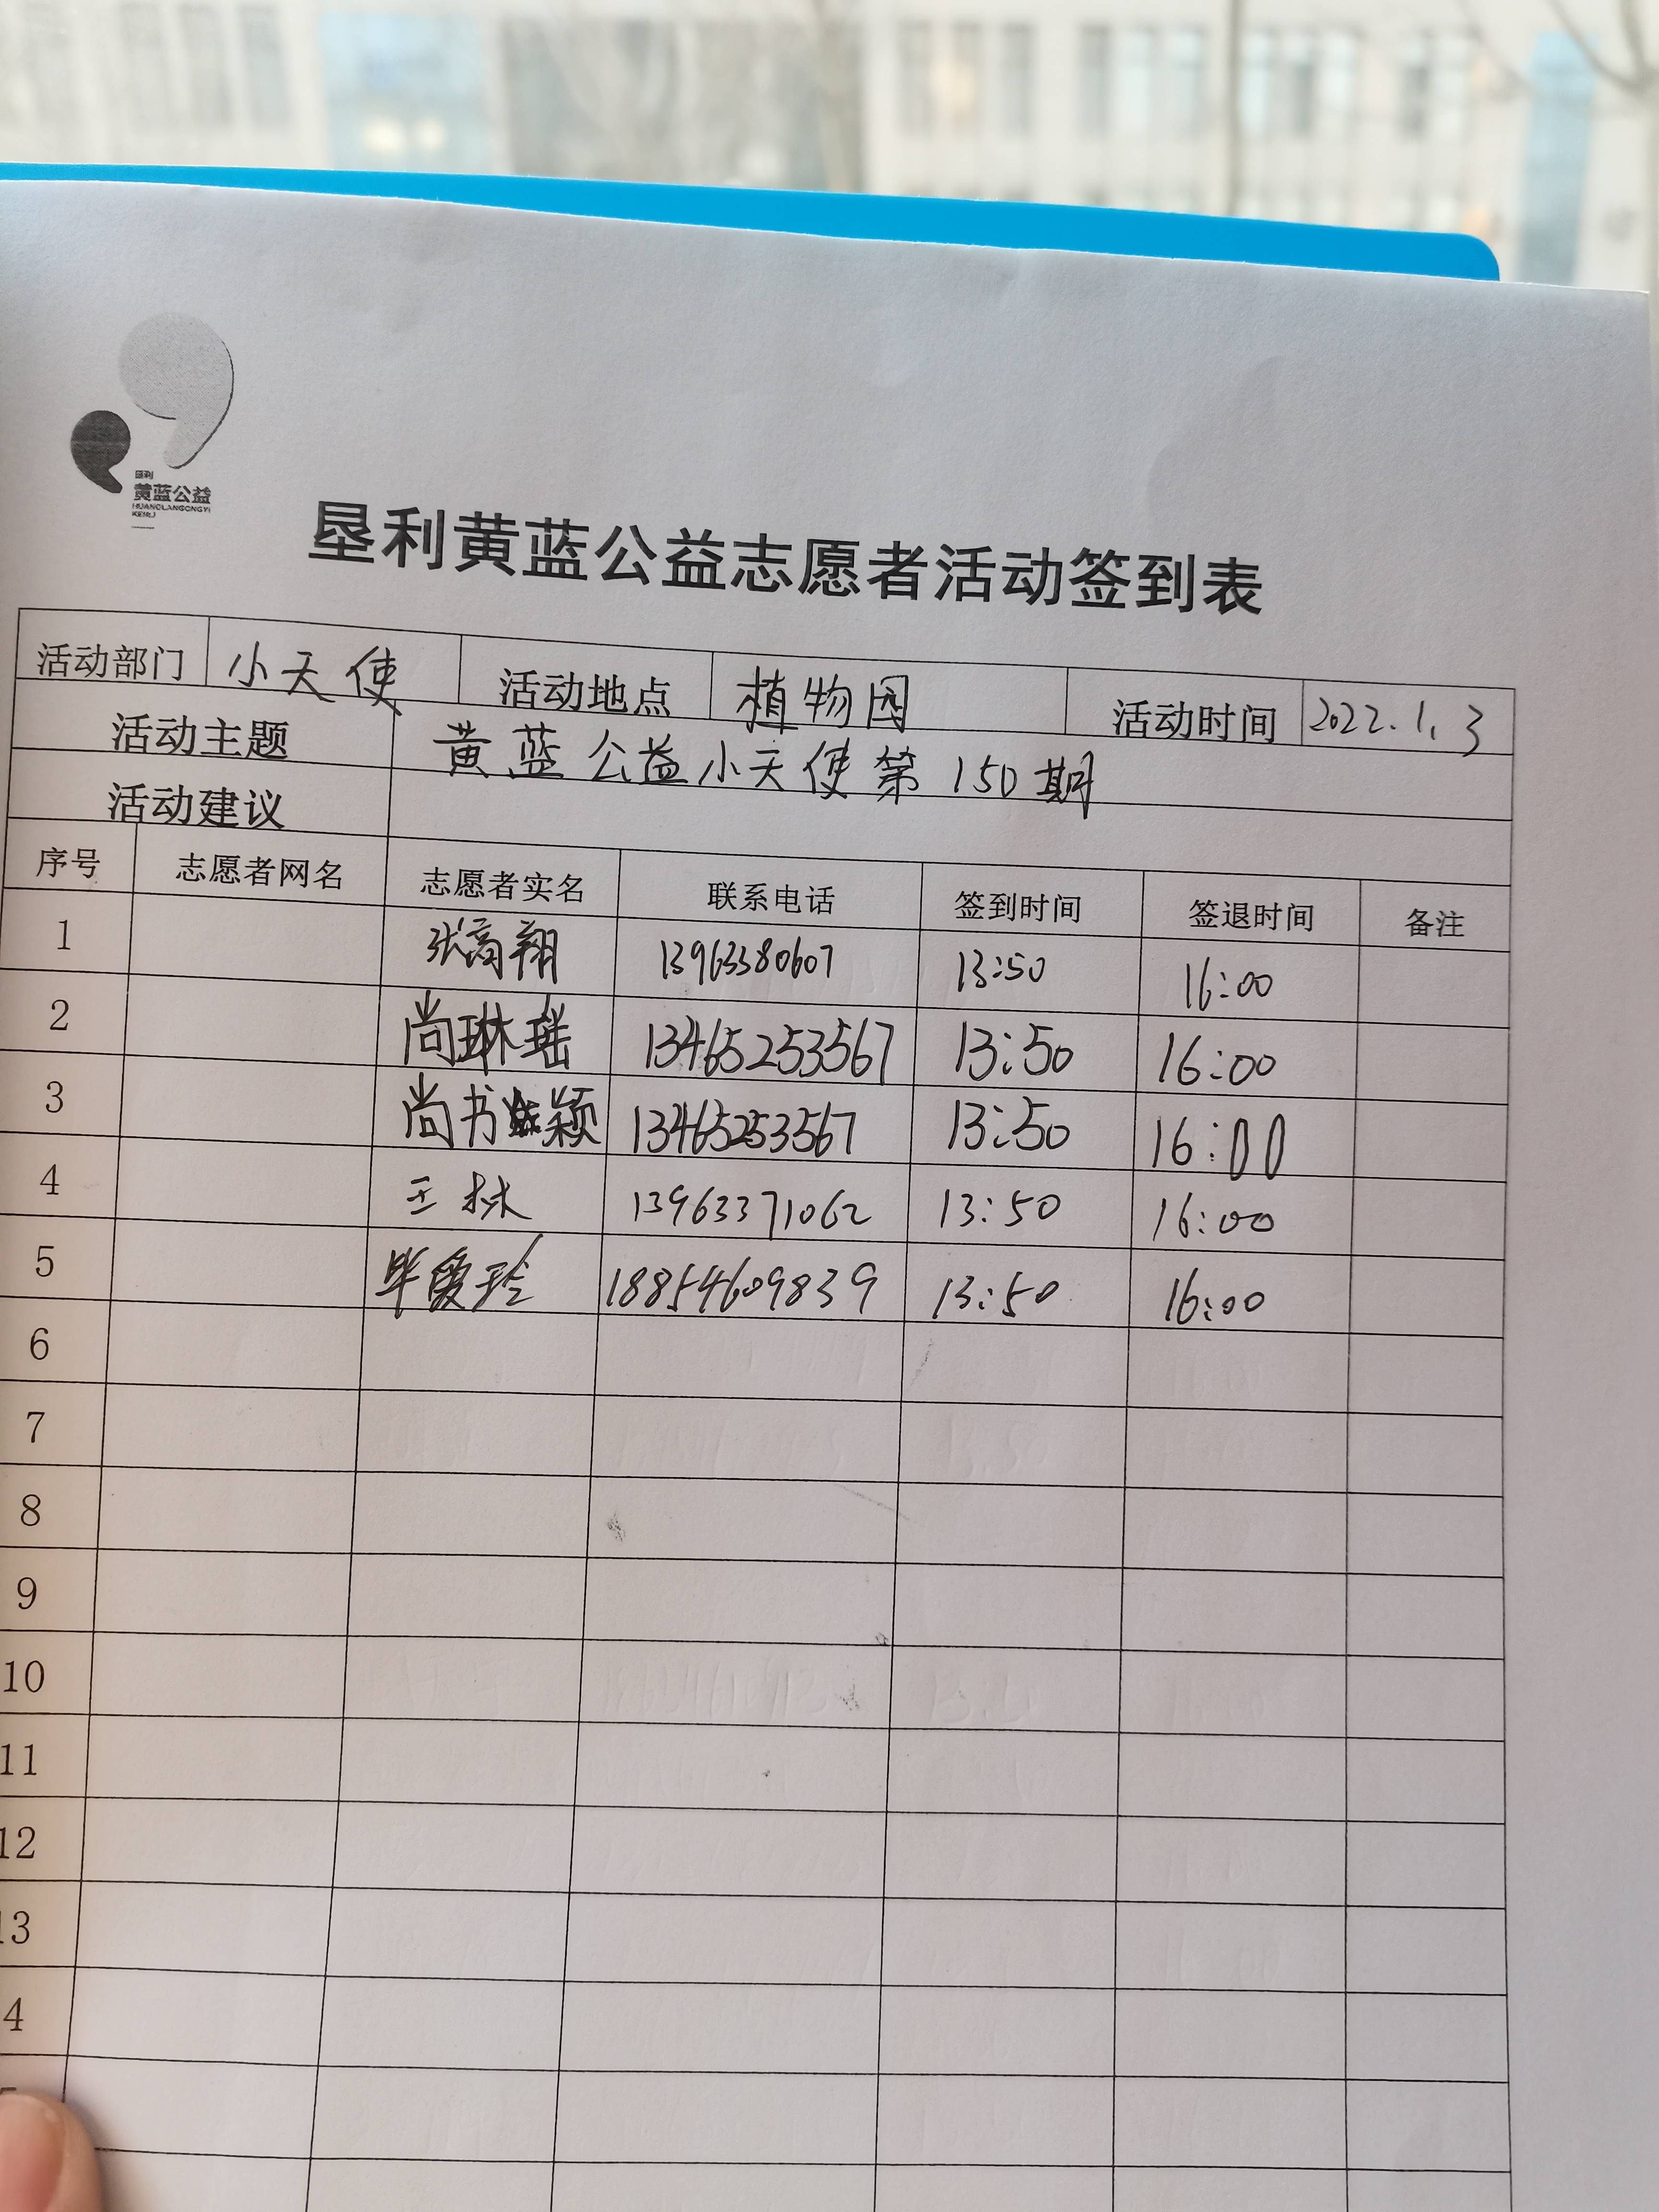 垦利
黄蓝公益
HUANGLANGONGYI
KENLI
垦利黄蓝公益志愿者活动签到表
活动部门 小天使 活动地点 植物园 活动时间 2022.1.3
活动主题 黄蓝公益小天使第150期
活动建议
序号 志愿者网名 志愿者实名 联系电话 签到时间 签退时间 备注
1 张高翔 13963380607 13:50 16:00
2 尚琳瑶 13465253567 13:50 16:00
3 尚书颖 13465253567 13:50 16:00
4 王林 13963371062 13:50 16:00
5 毕爱玲 18854609839 13:50 16:00
6
7
8
9
10
11
12
13
4